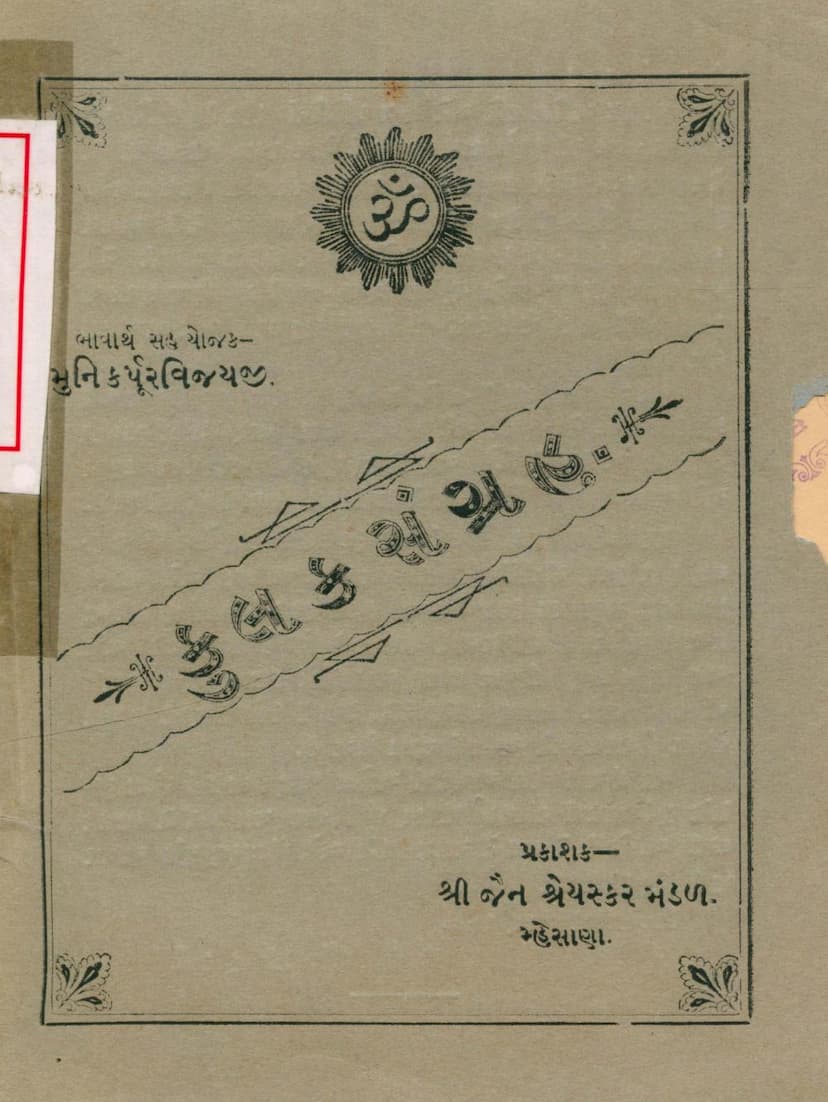 ॐ
ભાવાર્થ સહ યોજક—
મુનિ કર્પૂરવિજયજી.
કુલક સંગ્રહ.
પ્રકાશક—
શ્રી જૈન શ્રેયસ્કર મંડળ.
મ્હેસાણા.